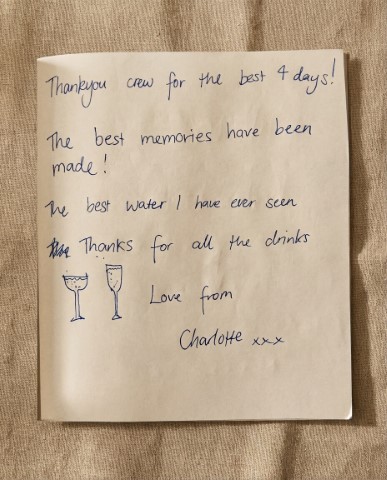 Thankyou crew for the best 4 days!
The best memories have been
made!
The best water I have ever seen
Thanks for all the drinks
Love from
Charlotte xxx